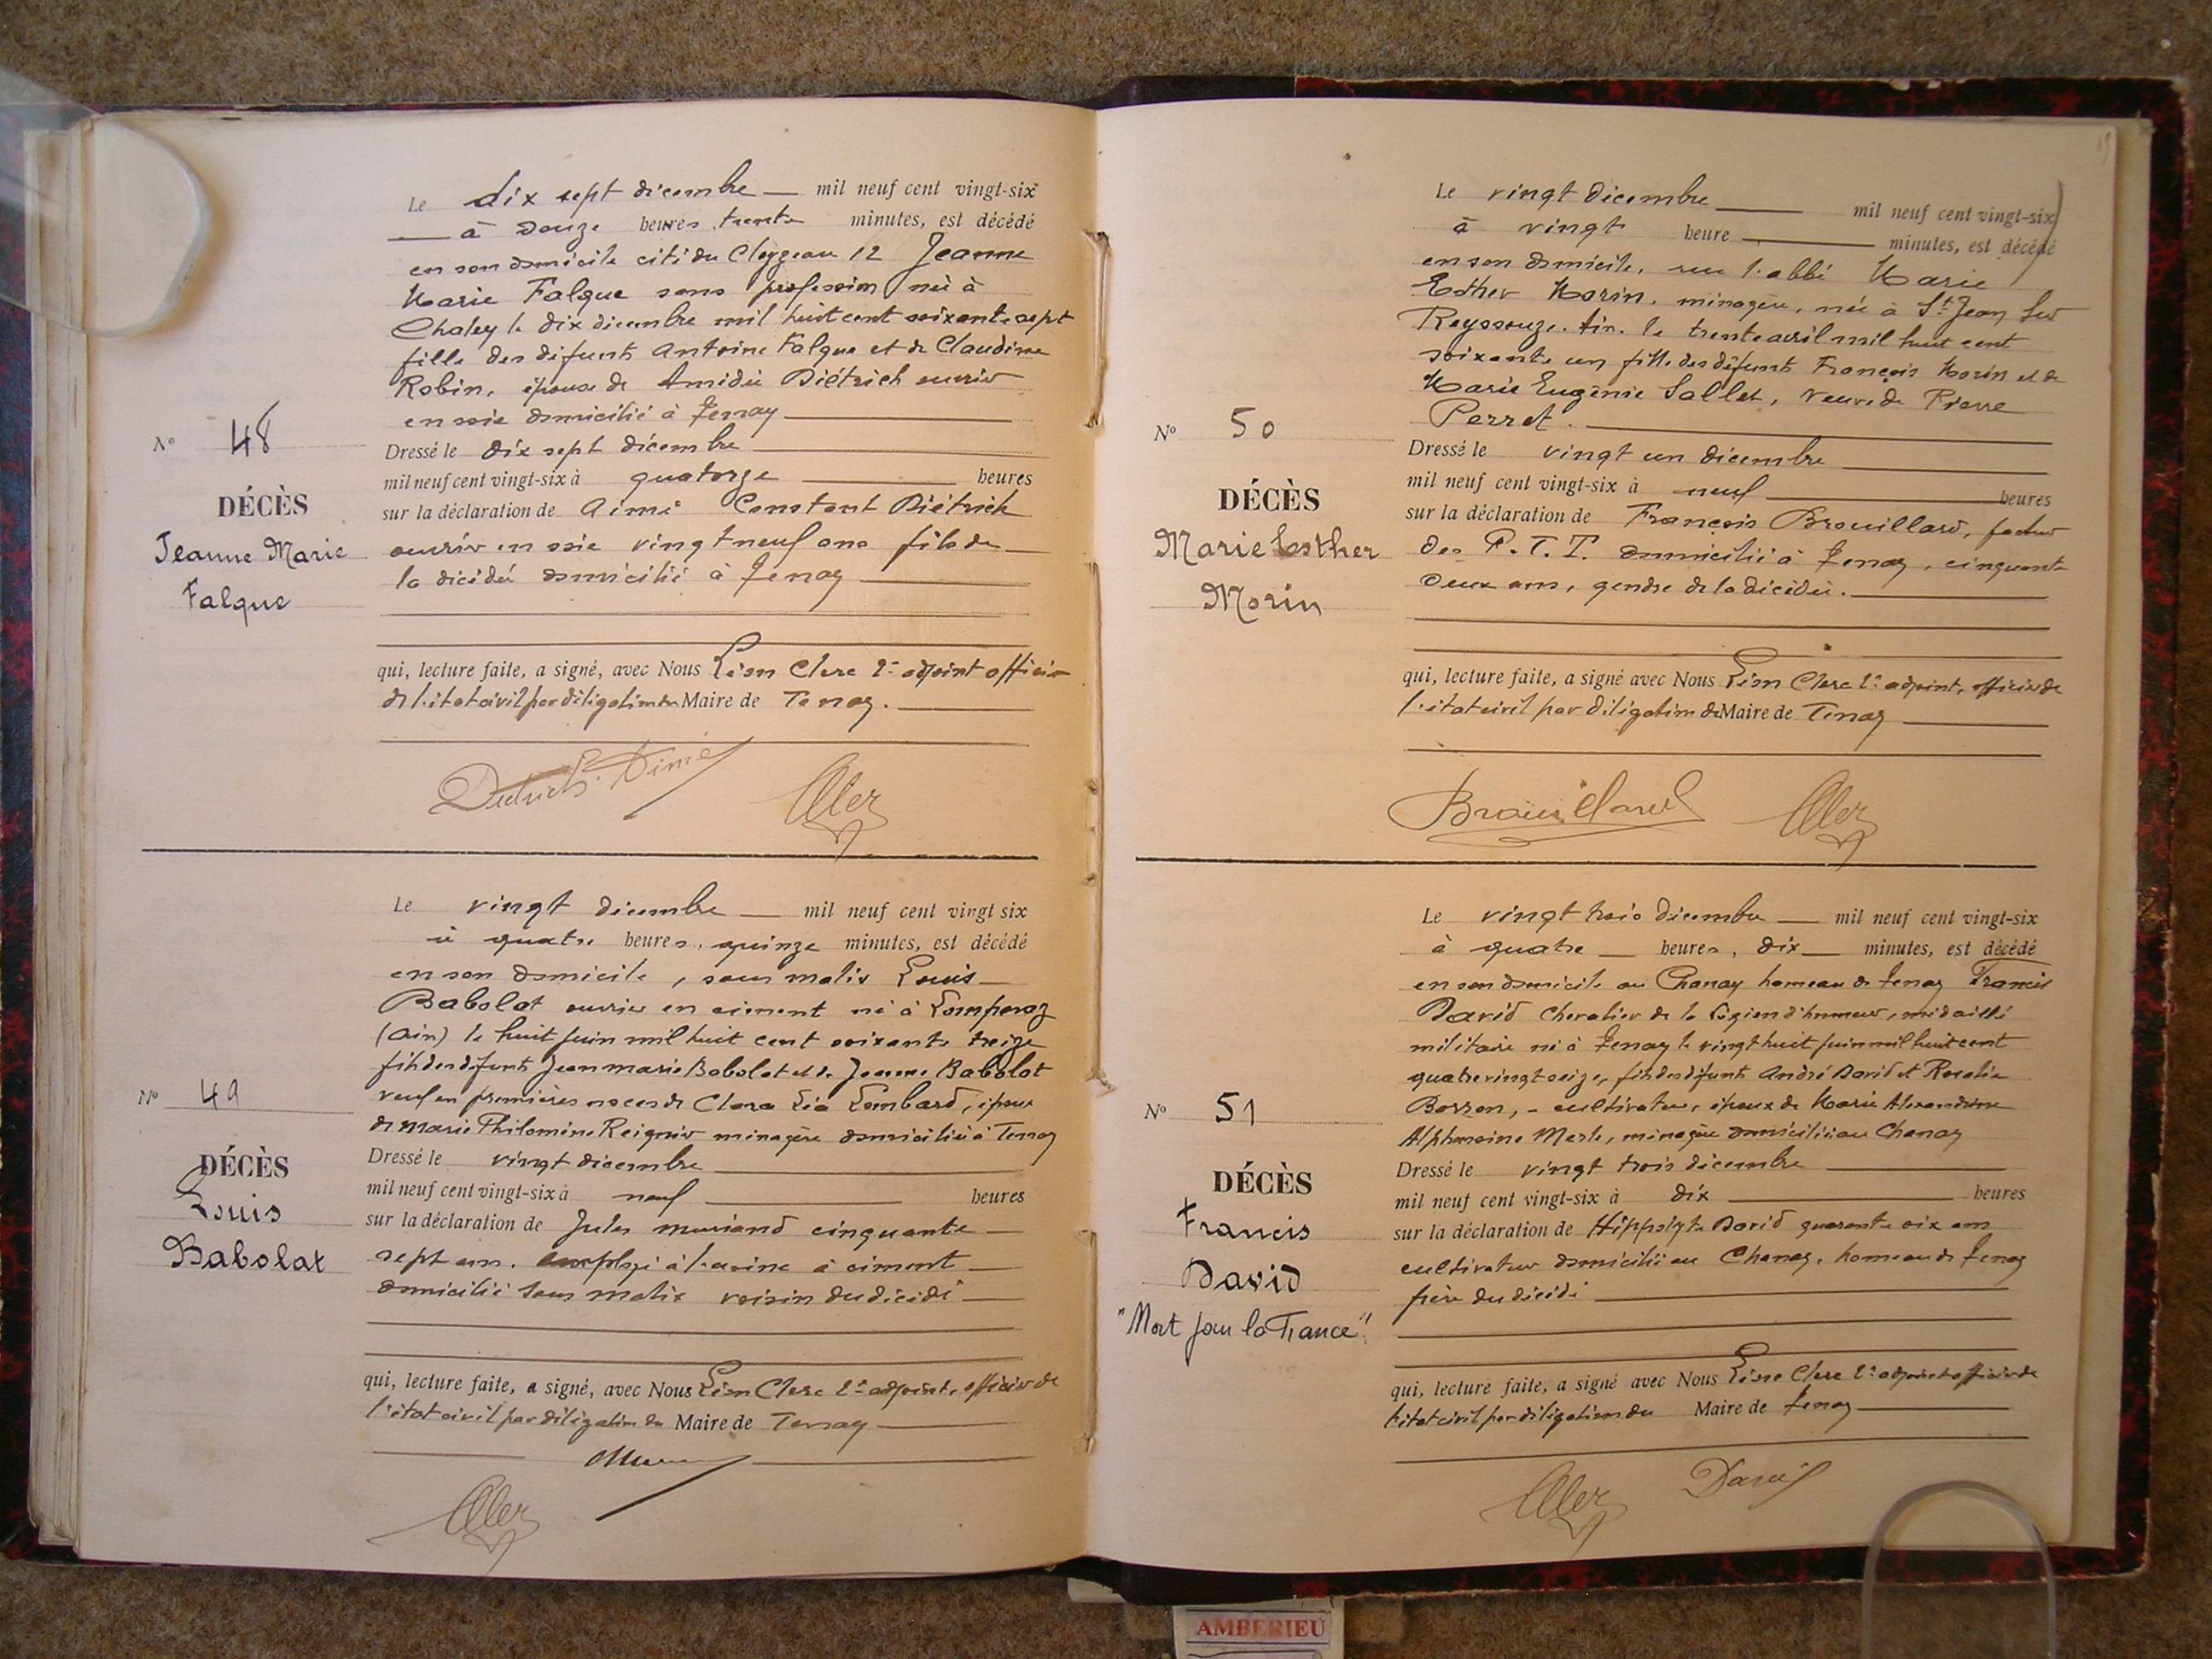 Le dix sept décembre — mil neuf cent vingt-six
— à douze heures trente minutes, est décédé
en son domicile cité du Cleyzeau 12 Jeanne
Marie Falque sans profession née à
Chaley le dix décembre mil huit cent soixante sept
fille des défunts Antoine Falque et de Claudine
Robin, épouse de Amédée Diétrich ouvrier
en soie domicilié à Tenay
Dressé le dix sept décembre
mil neuf cent vingt-six à quatorze heures
sur la déclaration de Aimé Constant Diétrich
ouvrier en soie vingt neuf ans fils de
la décédée domicilié à Tenay
qui, lecture faite, a signé, avec Nous Léon Clerc 2e adjoint officier
de l'état civil par délégation du Maire de Tenay.
Nº 48
DÉCÈS
Jeanne Marie
Falque
Dietrich Aimé Clerc
Le vingt décembre — mil neuf cent vingt six
à quatre heures, quinze minutes, est décédé
en son domicile, sous Louis
Babolat ouvrier en ciment né à Lompnaz
(Ain) le huit juin mil huit cent soixante treize
fils des défunts Jean marie Babolat et de Jeanne Babolat
veuf en premières noces de Clara Léa Lombard, époux
de marie Philomène Reignier ménagère domiciliée à Tenay
Dressé le vingt décembre
mil neuf cent vingt-six à neuf heures
sur la déclaration de Jules cinquante
sept ans, employé à l'usine à ciment
domicilié sous voisin du décédé
qui, lecture faite, a signé, avec Nous Léon Clerc 2e adjoint, officier de
l'état civil par délégation du Maire de Tenay
Nº 49
DÉCÈS
Louis
Babolat
Clerc
Le vingt décembre mil neuf cent vingt-six
à vingt heure — minutes, est décédé
en son domicile, rue l'abbé Marie
Esther Morin, ménagère, née à St Jean Sur
Reyssouze. Ain. le trente avril mil huit cent
soixante un fille des défunts François Morin et de
Marie Eugénie Sallet, veuve de Pierre
Perret.
Dressé le vingt un décembre
mil neuf cent vingt-six à neuf heures
sur la déclaration de François Brouillard, facteur
des P.T.T. domicilié à Tenay, cinquante
deux ans, gendre de la décédée.
qui, lecture faite, a signé avec Nous Léon Clerc 2e adjoint, officier de
l'état civil par délégation du Maire de Tenay
Nº 50
DÉCÈS
Marie Esther
Morin
Brouillard Clerc
Le vingt trois décembre — mil neuf cent vingt-six
à quatre — heures, dix — minutes, est décédé
en son domicile au Chanay hameau de Tenay Francis
David Chevalier de la Légion d'honneur, médaillé
militaire né à Tenay le vingt huit juin mil huit cent
quatre vingt seize, fils des défunts André David et Rosalie
Borron, - cultivateur, époux de Marie Alexandrine
Alphonsine Merle, ménagère domiciliée au Chanay
Dressé le vingt trois décembre
mil neuf cent vingt-six à dix heures
sur la déclaration de Hippolyte David quarante six ans
cultivateur domicilié au Chanay, hameau de Tenay
frère du décédé
qui, lecture faite, a signé avec Nous Léon Clerc 2e adjoint officier de
l'état civil par délégation du Maire de Tenay
Nº 51
DÉCÈS
Francis
David
"Mort pour la France"
Clerc David
AMBERIEU